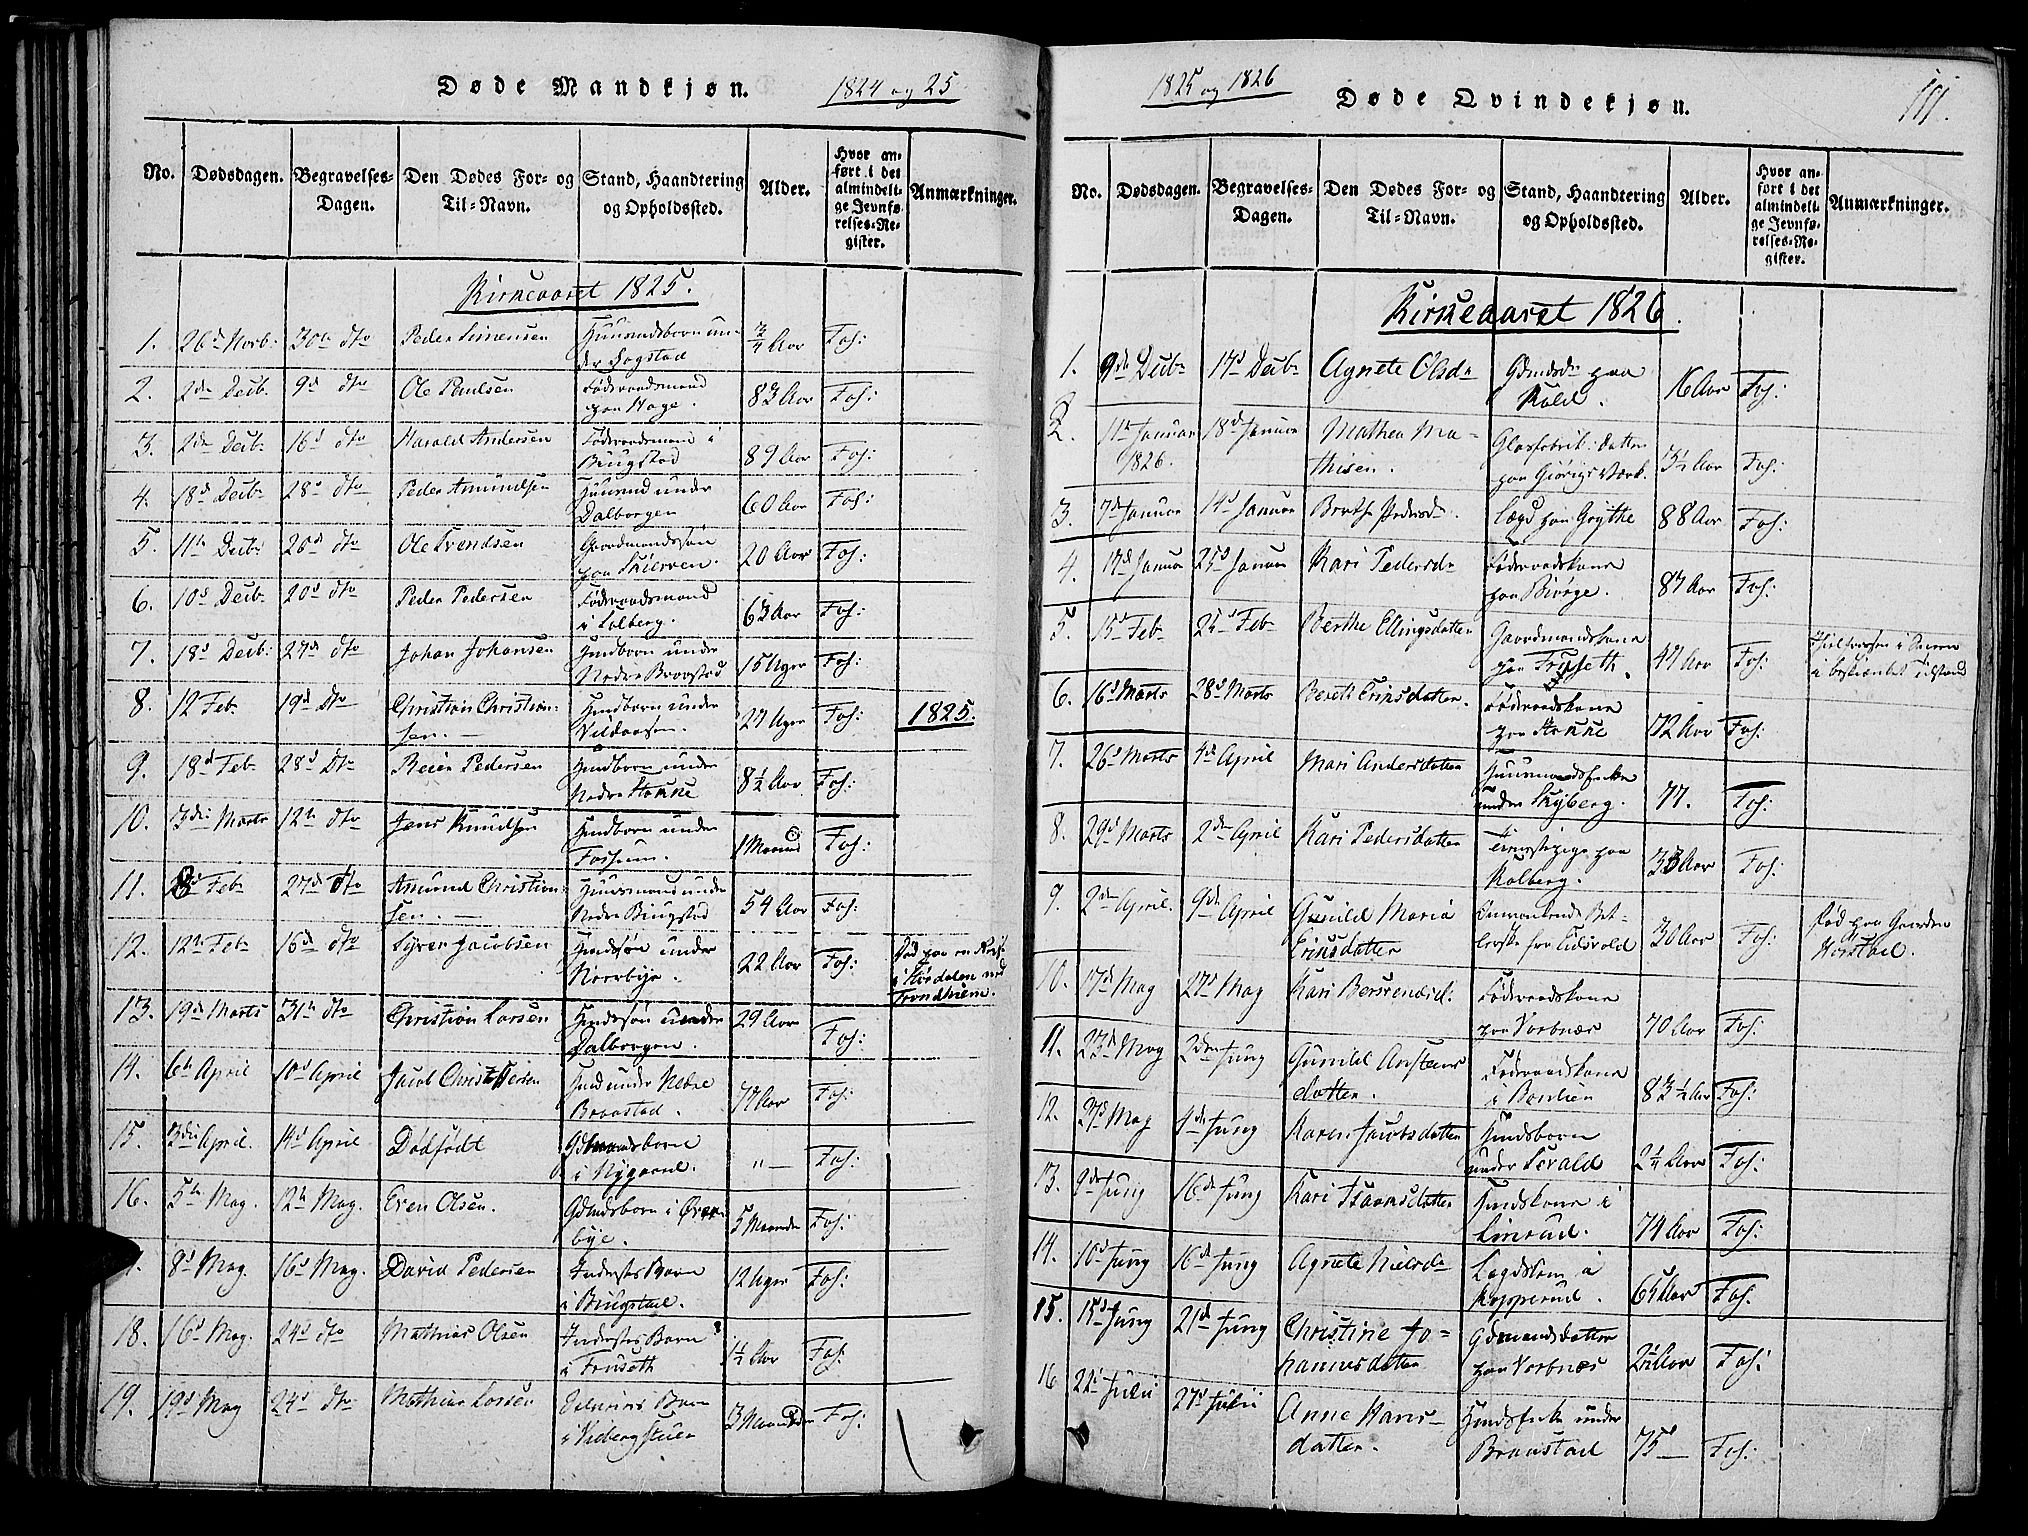 Døde Mandkjøn. 1824 og 25
No. Dødsdagen. Begravelses-Dagen. Den Dødes For- og Til-Navn. Stand, Haandtering og Opholdssted. Alder. Hvor anført i det almindelige Jevnførelses-Register. Anmærkninger.
Kirkeaaret 1825.
1. 26d Novb: 30te dto Peder Simensen Huusmdsbarn under Hogstad 3/4 Aar Fos:
2. 2de Decb. 9d dto Ole Paulsen Føderaadsmand paa Hage. 83 Aar Fos:
3. 2de Decb. 16d dto Harald Andersen Føderaadsmand i Biugstad 89 Aar Fos:
4. 18d Decb. 28d dto Peder Amundsen Huusmd under Dalborgen 60 Aar Fos:
5. 11te Decb. 26d dto Ole Svendsen Gaardmandssøn paa Skierven. 20 Aar Fos:
6. 10d Decb. 20d dto Peder Pedersen Føderaadsmand i Solberg. 63 Aar Fos:
7. 18d Decb: 27de dto Johan Johansen Hmdbarn under Nedre Braastad 15 Uger Fos:
8. 12 Feb. 19d Dto Christian Christiansen. Hmdbarn under Vildaasen. 27 Uger Fos: 1825.
9. 18d Feb. 28d Dto Reier Pedersen Hmdbarn under Nedre Hokke 8 1/2 Aar Fos:
10. 3die Marts 12te dto Jens Knudsen Hmdbarn under Fossum. 1 Maaned Fos:
11. 8d Feb. 27de dto Amund Christiansen. Huusmand under Nedre Biugstad 54 Aar Fos:
12. 12te Feb 16d dto Syver Jacobsen Hmdsøn under Norrbye. 22 Aar Fos: Død paa en Reise i Størdalen ved Trondhiem.
13. 19d Marts 31te dto Christian Larsen Hmdssøn under Dalborgen. 29 Aar Fos:
14. 6te April 10d April Jacob Christophersen Hmd under Nedre Braastad. 77 Aar Fos:
15. 3die April. 14d April Dødfødt Gdmandsbarn i Nygaard. " — Fos:
16. 5te May. 12te May. Even Olsen. Gdmdsbarn i Øverbye. 5 Maaneder Fos:
8d May. 16d May. David Pedersen Inderstes Barn i Biugstad. 12 Uger Fos:
18. 16d May. 24d dto Mathias Olsen Inderstes Barn i Fruseth 1 1/2 Aar Fos:
19. 19d May 24d dto Mathias Larsen Barn i Viebergstuen 3 Maaneder Fos:
1825 og 1826 Døde Qvindekjøn. 111.
No. Dødsdagen. Begravelses-Dagen. Den Dødes For- og Til-Navn. Stand, Haandtering og Opholdssted. Alder. Hvor anført i det almindelige Jevnførelses-Register. Anmærkninger.
Kirkeaaret 1826.
1. 9de Decb. 17d Decb. Agnete Olsd. Gdmdsd. paa Kold. 16 Aar Fos:
2. 11te Januar 1826. 18d Januar Mathea Mathisen. Glasfabrik. datter paa Giøvigs Værk. 3 1/2 Aar Fos:
3. 7de Januar 14d Januar Berthe Pedersd. Lægd paa Grythe 88 Aar Fos:
4. 17d Januar 25d Januar Kari Pedersd. Føderaadskone paa Biørge. 87 Aar Fos:
5. 15d Feb. 25d Feb. Berthe Ellingsdatter Gaardmandskone paa Friseth. 47 Aar Fos: i bestiænket Tilstand
6. 16d Marts 28d Marts Berethe Erinsdatter. Føderaadskone paa Hokke 72 Aar Fos:
7. 26d Marts 4de April Mari Andersdatter Huusmandsenke under Skyberg. 77. Fos:
8. 29d Marts 2den April Kari Pedersdatter Tienestepige paa Kolberg. 33 Aar Fos:
9. 2den April. 9de April Gunild Maria Erinsdatter Omvankende Betlerske fra Eidsvold 30 Aar Fos: Død paa Gaarden Horstad.
10. 17de May 27d May Kari Bersvendsd. Føderaadskone paa Vorbnæs 70 Aar Fos:
11. 23d May 2den Juny Gunild Arstensdatter. Føderaadskone i Berslien 83 1/2 Aar Fos:
12. 27d May 4de Juny Karen Jacobsdatter Hmdsbarn under Sevald 2 1/4 Aar Fos:
13. 9de Juny 16de Juny Kari Isaaksdatter Hmdskone i Linrud. 74 Aar Fos:
14. 10d Juny 16de Juny Agnete Nielsd. Lægdslem i Kopperud. 65 Aar Fos.
15. 15d Juny 21d Juny Christine Johannesdatter Gdmandsdatter paa Vorbnæs 2 1/2 Aar Fos:
16 22d Julii 27d Julii Anne Hansdatter. Hmdsenke under Braastad 75 — Fos: